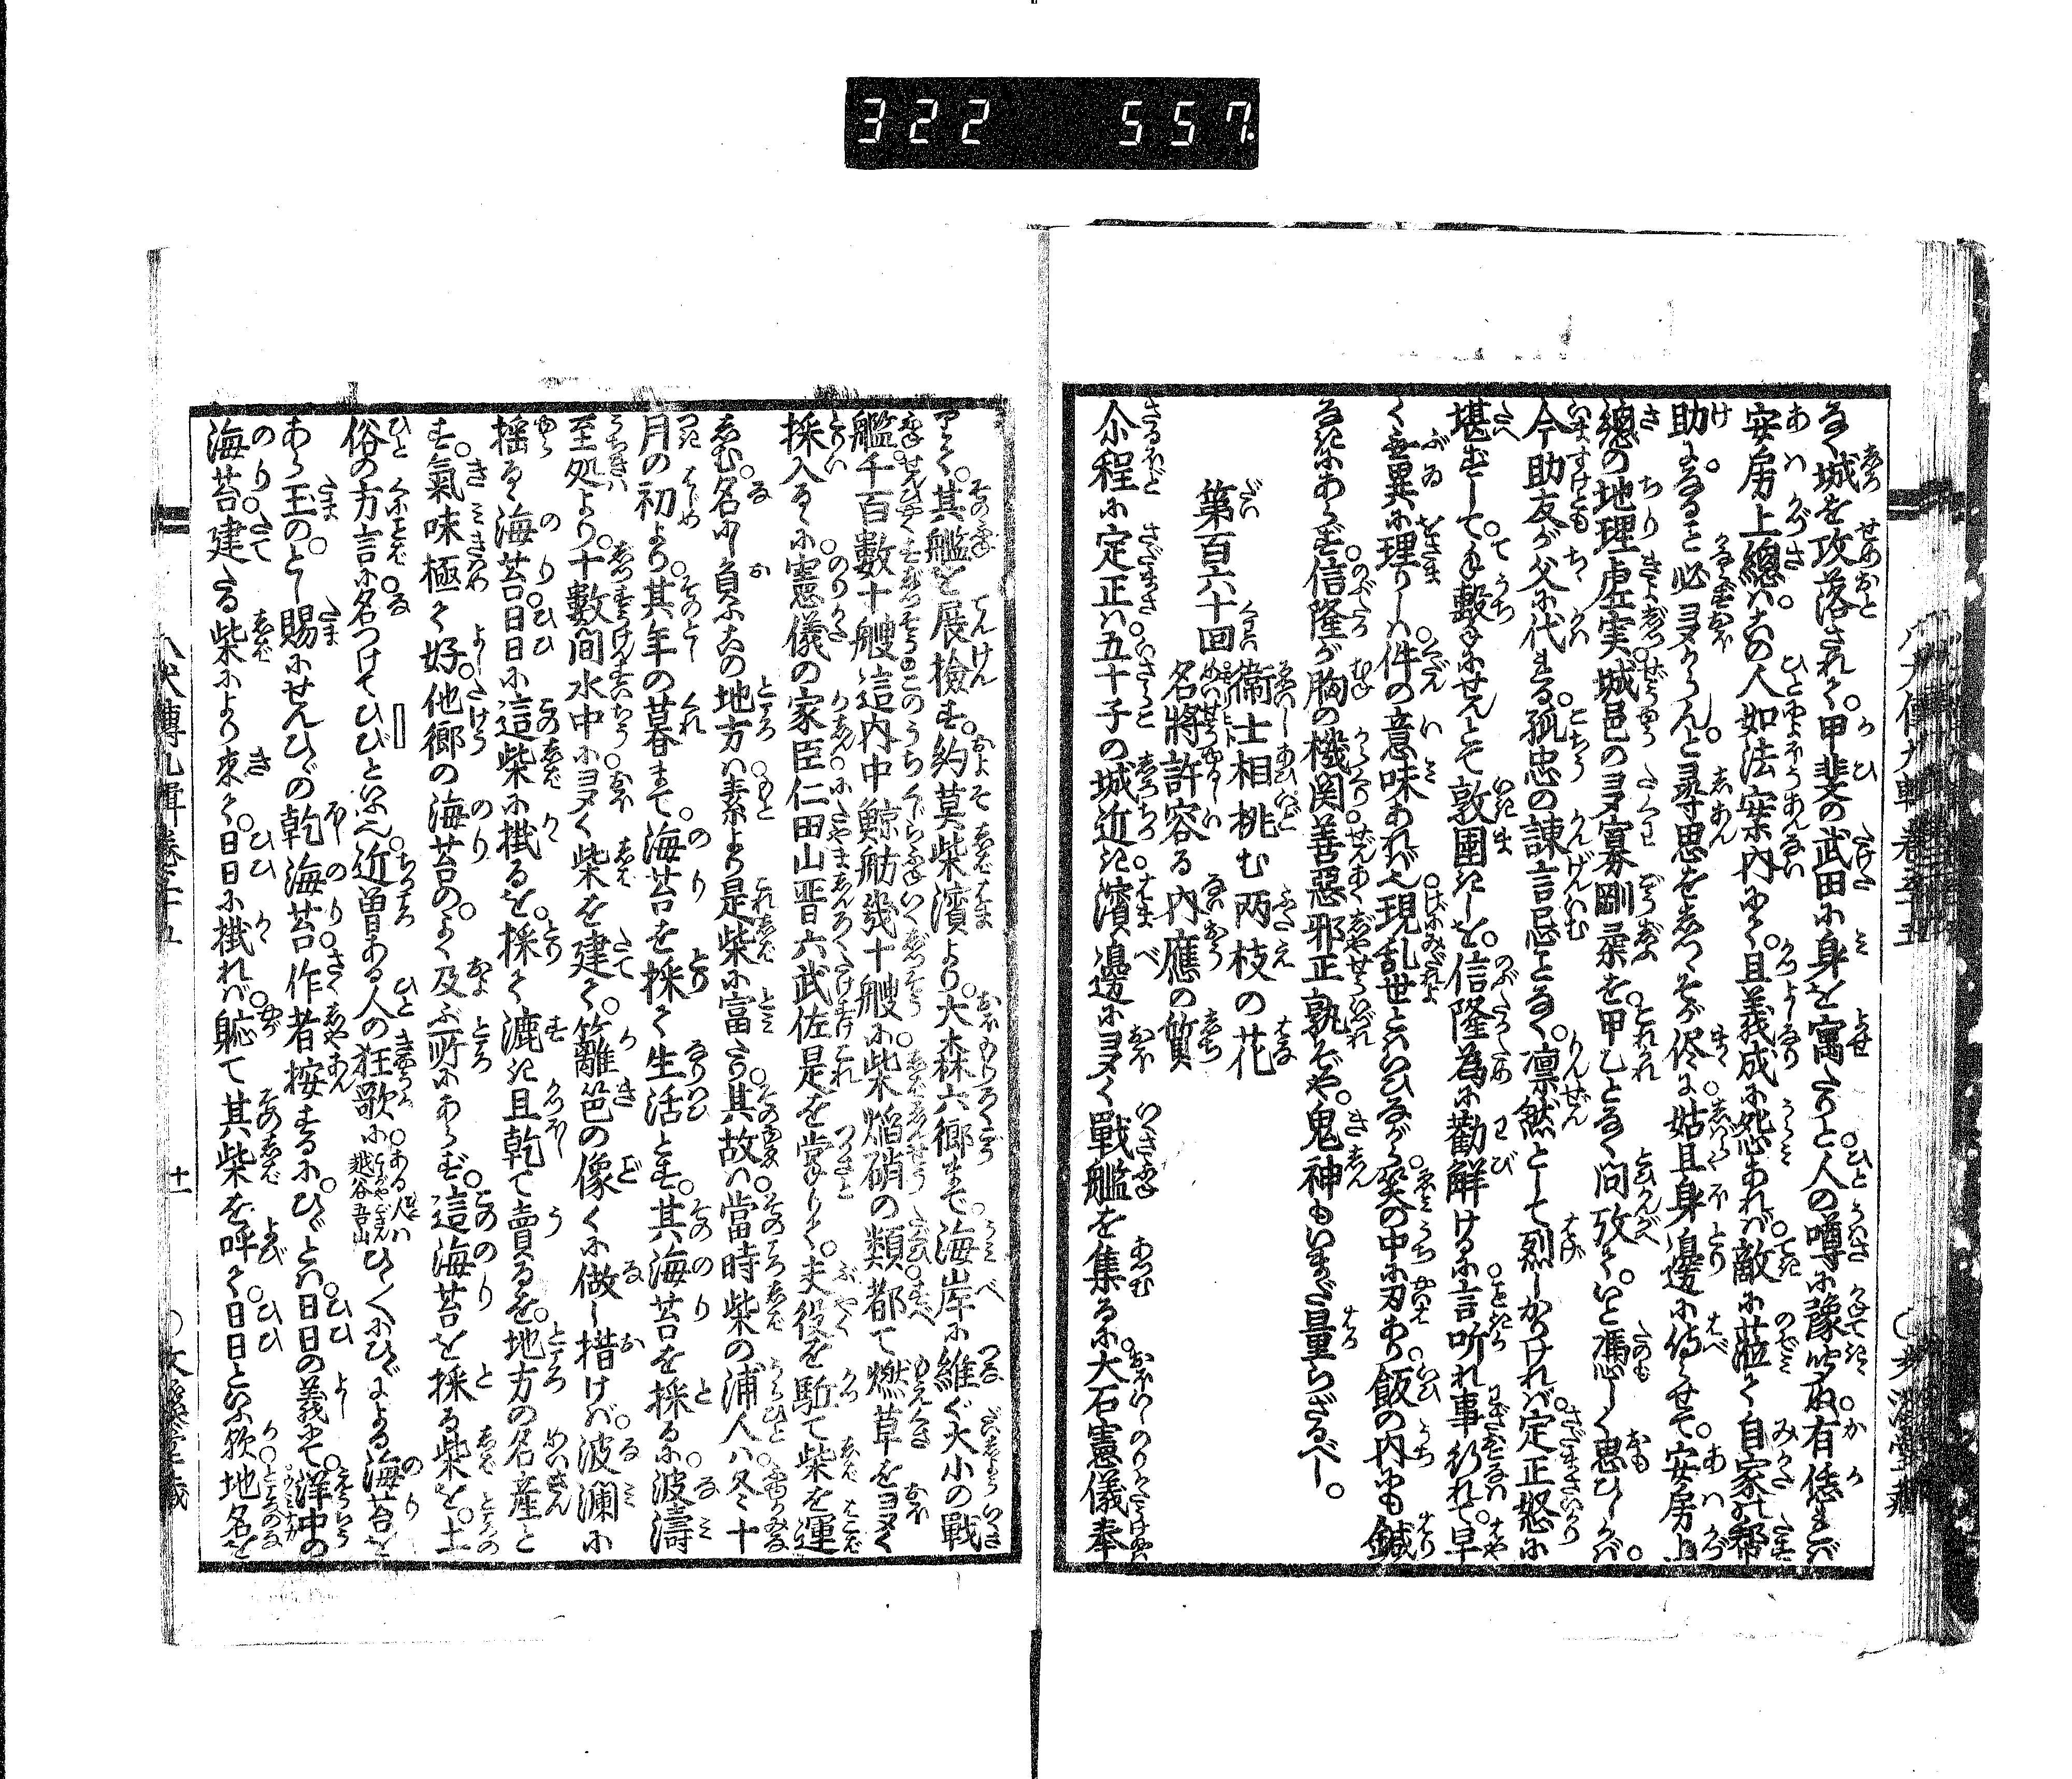 322 557
なく城を攻落されて。甲斐の武田に身を寓たりと。人の噂に豫聞ぬ。有恁れば
安房上總は。その人如法案内にて。且義成に怨あれば。敵に莅て自家の幇
助になること必多からんと。尋思をしつゝそが侭に。姑且身邊に侍らせて。安房上
總の地理虚実。城邑の多寡剛柔を。甲乙となく問攷て。いと憑しく思ひしかば。
今助友が父に代れる。孤忠の諫言忌ことなく。凛然として烈しかりければ。定正怒に
堪ずして。手撃にせんとて敦圉きしを。信隆為に勸解けるに。言听れ事行れて。早
く無異に理りしは。件の意味あれば也。現乱世とはいひながら。笑の中に刃あり。飯の内にも鍼
なきにあらず。信隆が胸の機関。善惡邪正孰ぞや。鬼神もいまだ量らざるべし。
第百六十回
衞士相挑む両枝の花
名將許容る内應の質
尒程に定正は。五十子の城近き濱邊に多く戰艦を集るに。大石憲儀奉
りて。其艦を展撿す。約莫柴濱より。大森六郷まで。海岸に維ぐ大小の戰
艦。千百數十艘。這内中鯨舫幾十艘に。柴焔硝の類都て燃草を多く
採入るゝに。憲儀の家臣。仁田山晋六武佐是を掌りて。夫役を駈て柴を運
しむ。名に負ふこの地方は。素より是柴に富たり。其故は。當時柴の浦人は。冬十
月の初より。其年の暮まで。海苔を採て生活とす。其海苔を採るに。波濤
至処より。十數間水中に。多く柴を建て。籬笆の像くに做し措けば。波瀾に
揺るゝ海苔。日日に這柴に掛るを。採て漉き且乾て賣るを。地方の名產と
す。氣味極て好。他郷の海苔の。よく及ぶ所にあらず。這海苔を採る柴を。土
俗の方言に名つけてひびといふ。近曽ある人の狂歌に。ある人は越谷吾山ひゝくにひゞによる海苔を
あら玉のとし賜にせんひゞの乾海苔。作者按ずるに。ひゞとは。日日の義にて。洋中の
海苔。建たる柴により來て。日日に掛れば。恥て其柴を呼て。日日といふ歟。地名を
八犬傳九輯卷三十五
十一